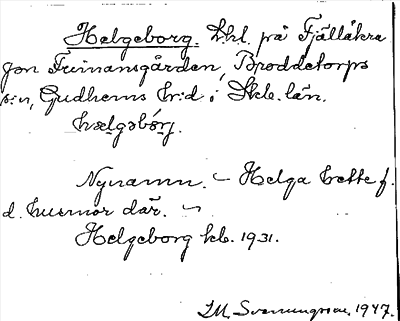 Helgeborg. Lht. på Fjällåkra
Jon Frimansgården, Broddetorps
s:n, Gudhems hd i Skb. län.
hælgəbórj.
Nynamn. – Helga hette f.
d. husmor där. –
Helgeborg kb. 1931.
I.M. Svenungsson, 1947.